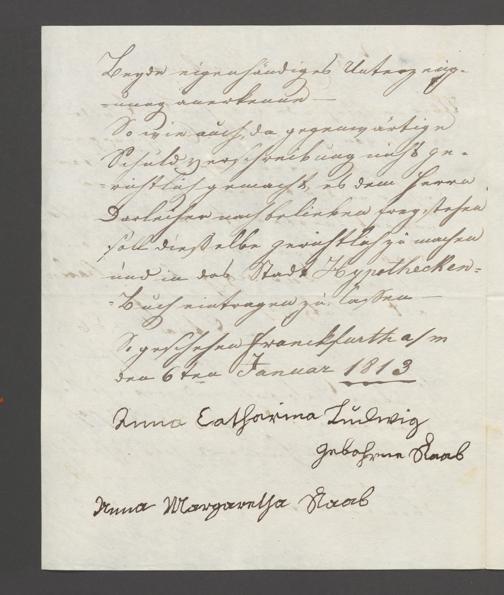 Beyde eigenhändiges Unterzeug-
-nung anerkenne —
So wie auch, da gegenwärtige
Schuldverschreibung nicht ge-
-richtlich gemacht, es dem Herrn
Darleiher nach belieben freystehen
soll dieselbe gerichtlich zu machen
und in das Stadt Hypothecken-
-Buch eintragen zu lassen —
So geschehen Franckfurth a/m
den 6ten Januar 1813
Anna Catharina Ludwig
gebohrne Raab
Anna Margaretha Raab